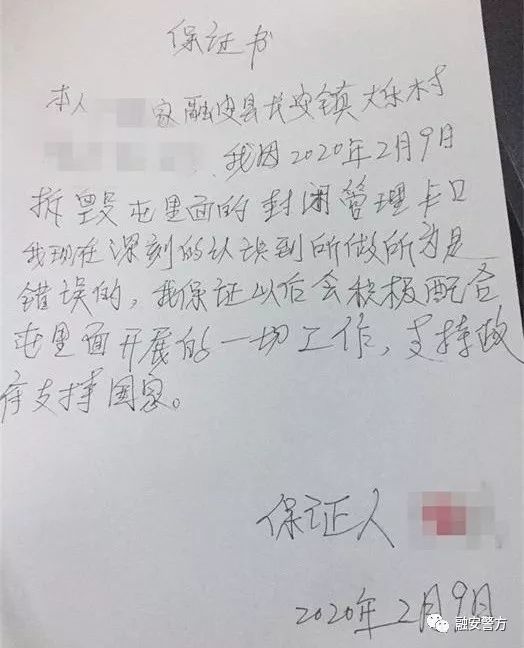 保证书
本人 家融安县长安镇大乐村
我因2020年2月9日
拆毁屯里面的封闭管理卡口
我现在深刻的认误到所做所为是
错误的，我保证以后会积极配合
屯里面开展的一切工作，支持政
府支持国家。
保证人
2020年2月9日
融安警方